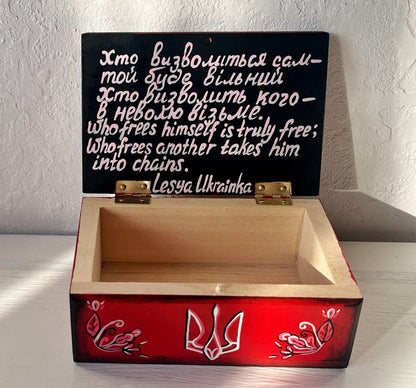 хто визволиться сам-
той буде вільний
хто визволить кого-
в неволю візьме.
Who frees himself is truly free;
Who frees another takes him
into chains.
Lesya Ukrainka